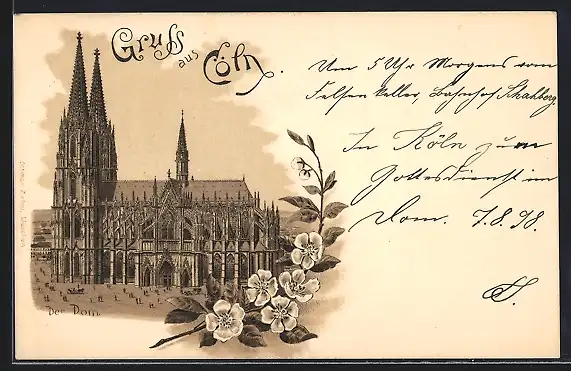 Gruss
aus
Cöln.
Um 5 Uhr Morgens vom
Felsenkeller, Bahnhof
In Köln zum
Gottesdienst im
Dom. 7.8.98.
Der Dom.